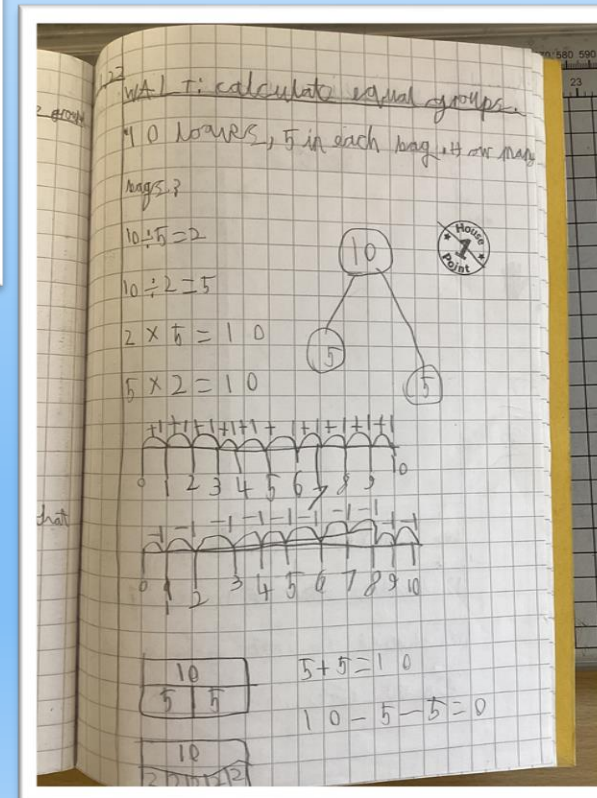 WALT: calculate equal groups.
10 loaves, 5 in each bag. How many
bags?
10÷5=2
10÷2=5
2 × 5 = 10
5 × 2 = 10
10
5
5
House
1
Point
+1 +1 +1 +1 +1 + +1 +1 +1 +1
0 1 2 3 4 5 6 7 8 9 10
-1 -1 -1 -1 -1 -1 -1 -1 -1 -1
0 1 2 3 4 5 6 7 8 9 10
that
10
5 5
5+5=10
10-5-5=0
10
2 2 2 2 2
580 590
23